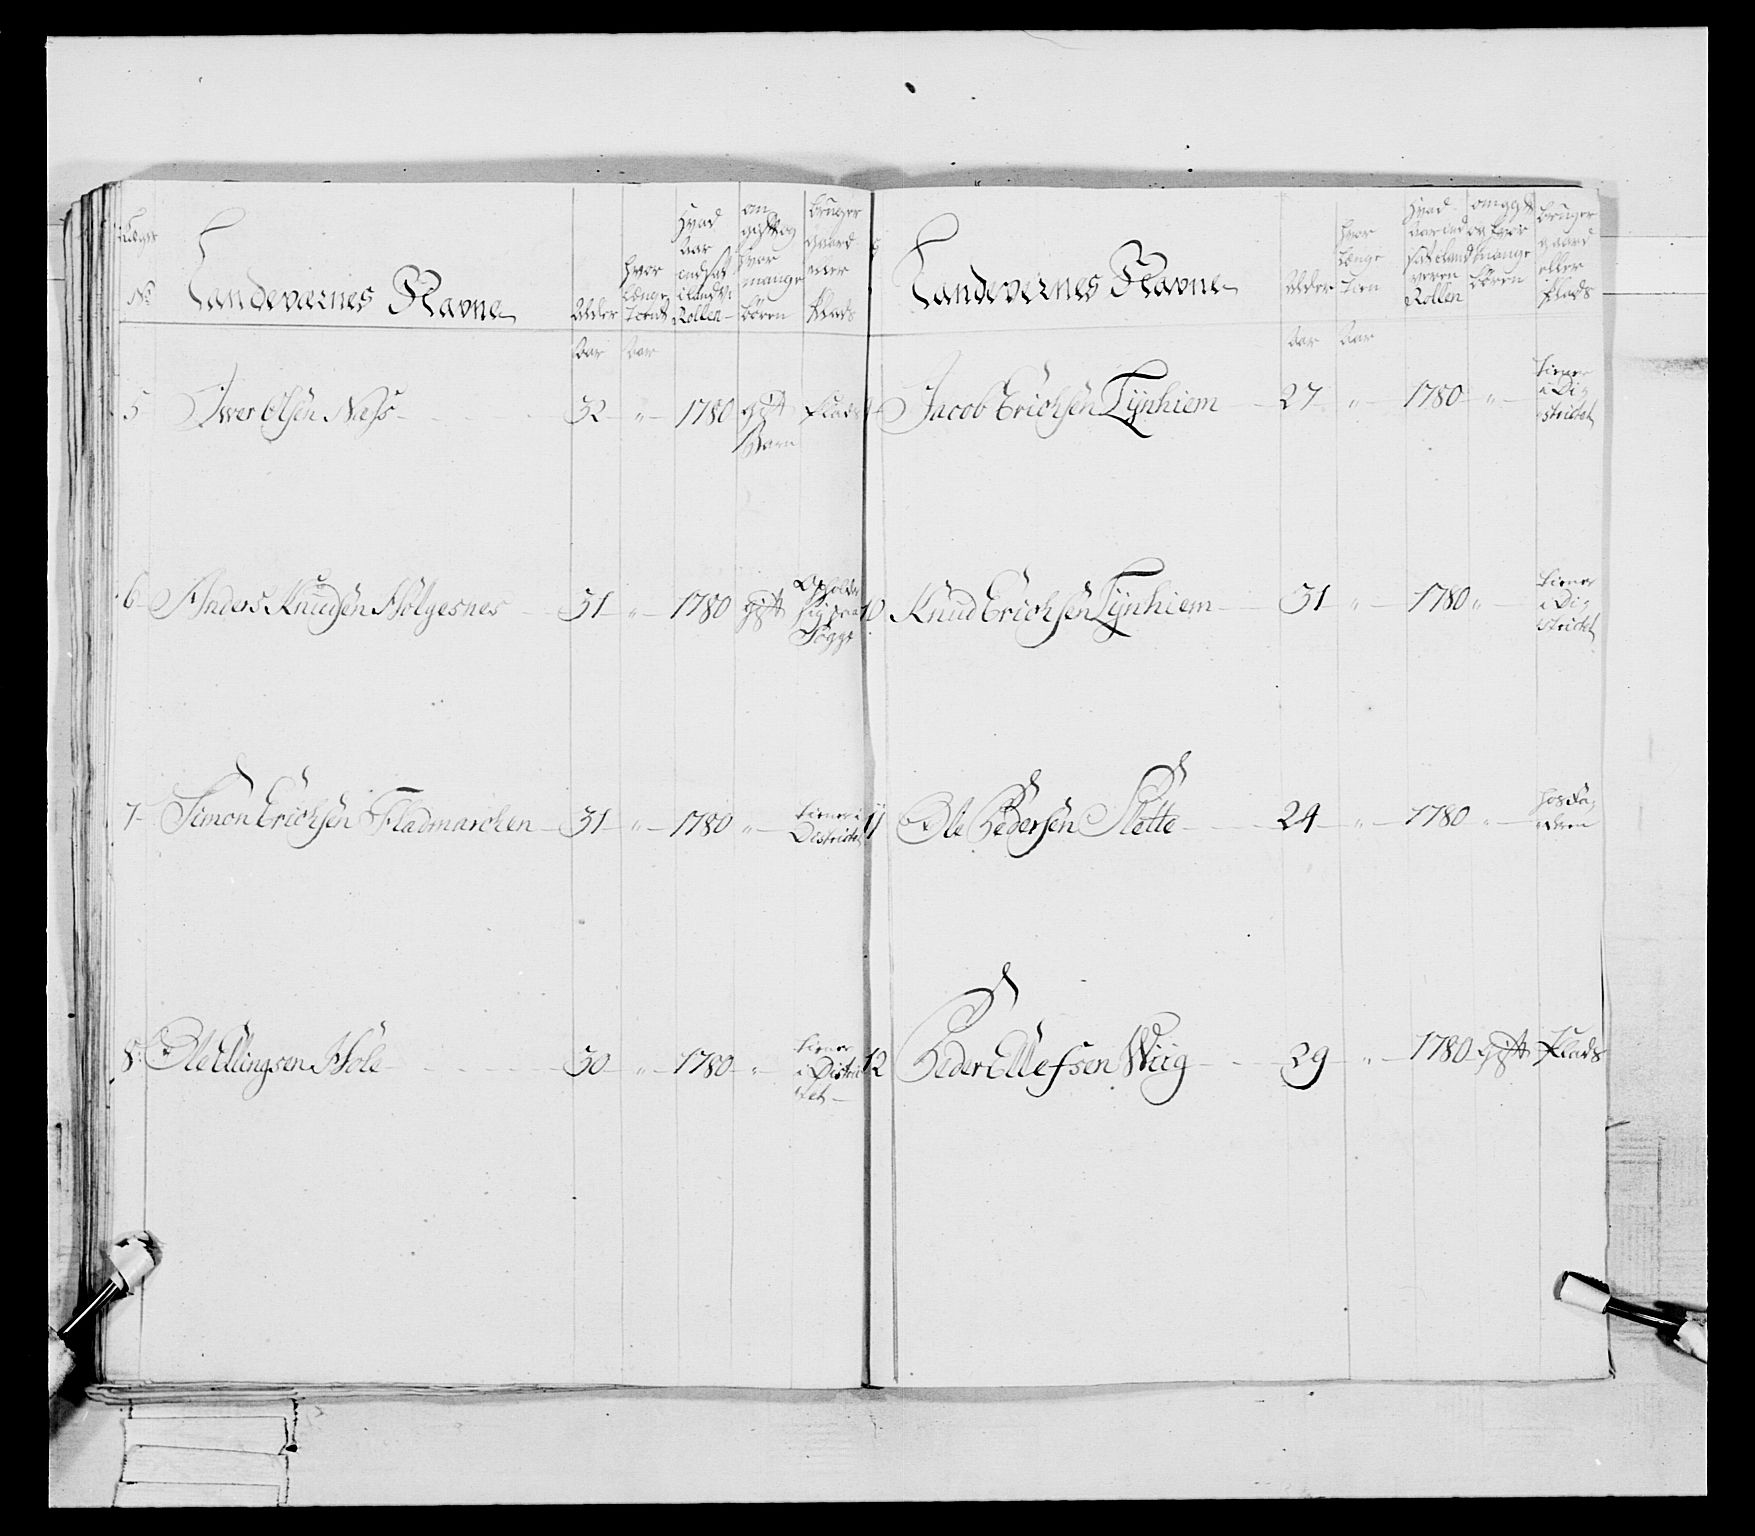 Lægs No Landeværnes Navne Alder hvor længe tient Hvad Aar indsat i landv: Rollen om gift og hvor mange børen bruger gaard eller Plads
Aar Aar
5 Iver Olsén Næss 32 " 1780 gift 1 Barn Plads
6 Anders Knudsén Hölgesnes 31 " 1780 gift Opholder sig paa Sogge
7 Simon Erichsén Fladmarchen 31 " 1780 " tiener i Districtet
8 Ole Ellingsen Hole 30 " 1780 " tiener i Districtet
Landevernes Navne Alder hvor længe tien Hvad Aar ind sat i land veren Rollen om gift og hvor mange børen bruger gaard eller Plads
Aar Aar
9 Jacob Erichsén Tÿnhiem 27 " 1780 " tiener i Districtet
10 Knud Erichsén Tÿnhiem 31 " 1780 " tiener i Districtet
11 Ole Pedersén Slette 24 " 1780 " hos Faderen
12 Peder Ellefsen Wiig 29 " 1780 gift Plads